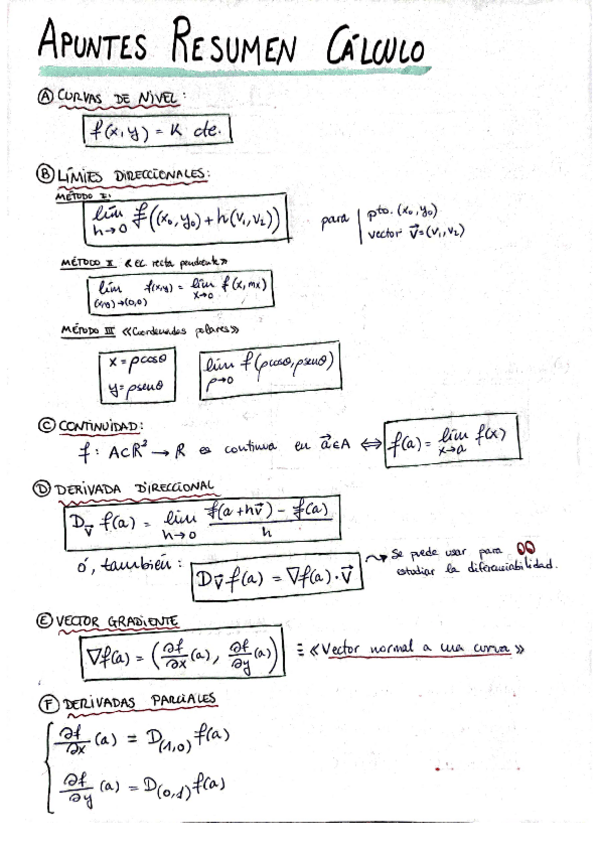 APUNTES RESUMEN CÁLCULO
Ⓐ CURVAS DE NIVEL:
f(x,y) = K cte.
Ⓑ LÍMITES DIRECCIONALES:
MÉTODO I:
lím h→0 f((x₀,y₀)+h(v₁,v₂)) para | pto. (x₀,y₀)
vector v⃗=(v₁,v₂)
MÉTODO II «EC recta pendiente»
lím (x,y)→(0,0) f(x,y) = lím x→0 f(x,mx)
MÉTODO III «Coordenadas polares»
x = ρcosθ
y = ρsenθ
lím ρ→0 f(ρcosθ, ρsenθ)
Ⓒ CONTINUIDAD:
f: A⊂R² → R es continua en a⃗∈A ⇔ f(a) = lím x→a f(x)
Ⓓ DERIVADA DIRECCIONAL
D_v⃗ f(a) = lím h→0 (f(a+hv⃗) - f(a))/h
ó, también: D_v⃗ f(a) = ∇f(a)·v⃗
Se puede usar para
estudiar la diferenciabilidad.
Ⓔ VECTOR GRADIENTE
∇f(a) = (∂f/∂x (a), ∂f/∂y (a)) ≡ «Vector normal a una curva»
Ⓕ DERIVADAS PARCIALES
∂f/∂x (a) = D(1,0) f(a)
∂f/∂y (a) = D(0,1) f(a)